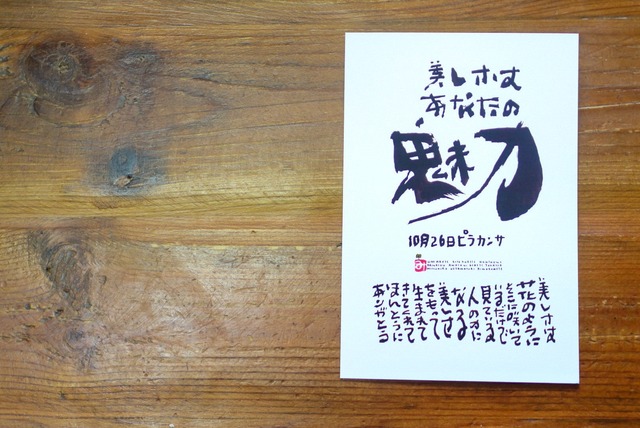 美しさは
あなたの
魅力
10月26日ピラカンサ
美しさは
花のように
そこに咲いて
いるだけで
見ている
人の力に
なる
美しさ
をもって
生まれて
きてくれて
ほんとうに
ありがとう